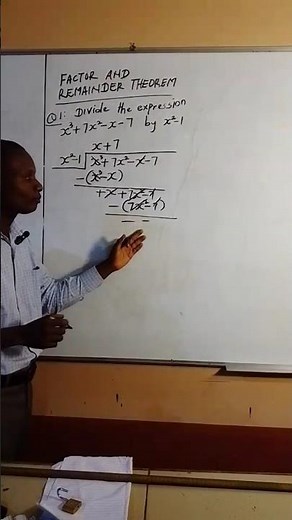 FACTOR AND
REMAINDER THEOREM
Q1: Divide the expression
x³+7x²-x-7 by x²-1
x+7
x²-1 x³+7x²-x-7
-(x³-x)
+x+7x²-7
-(7x²-7)
- -